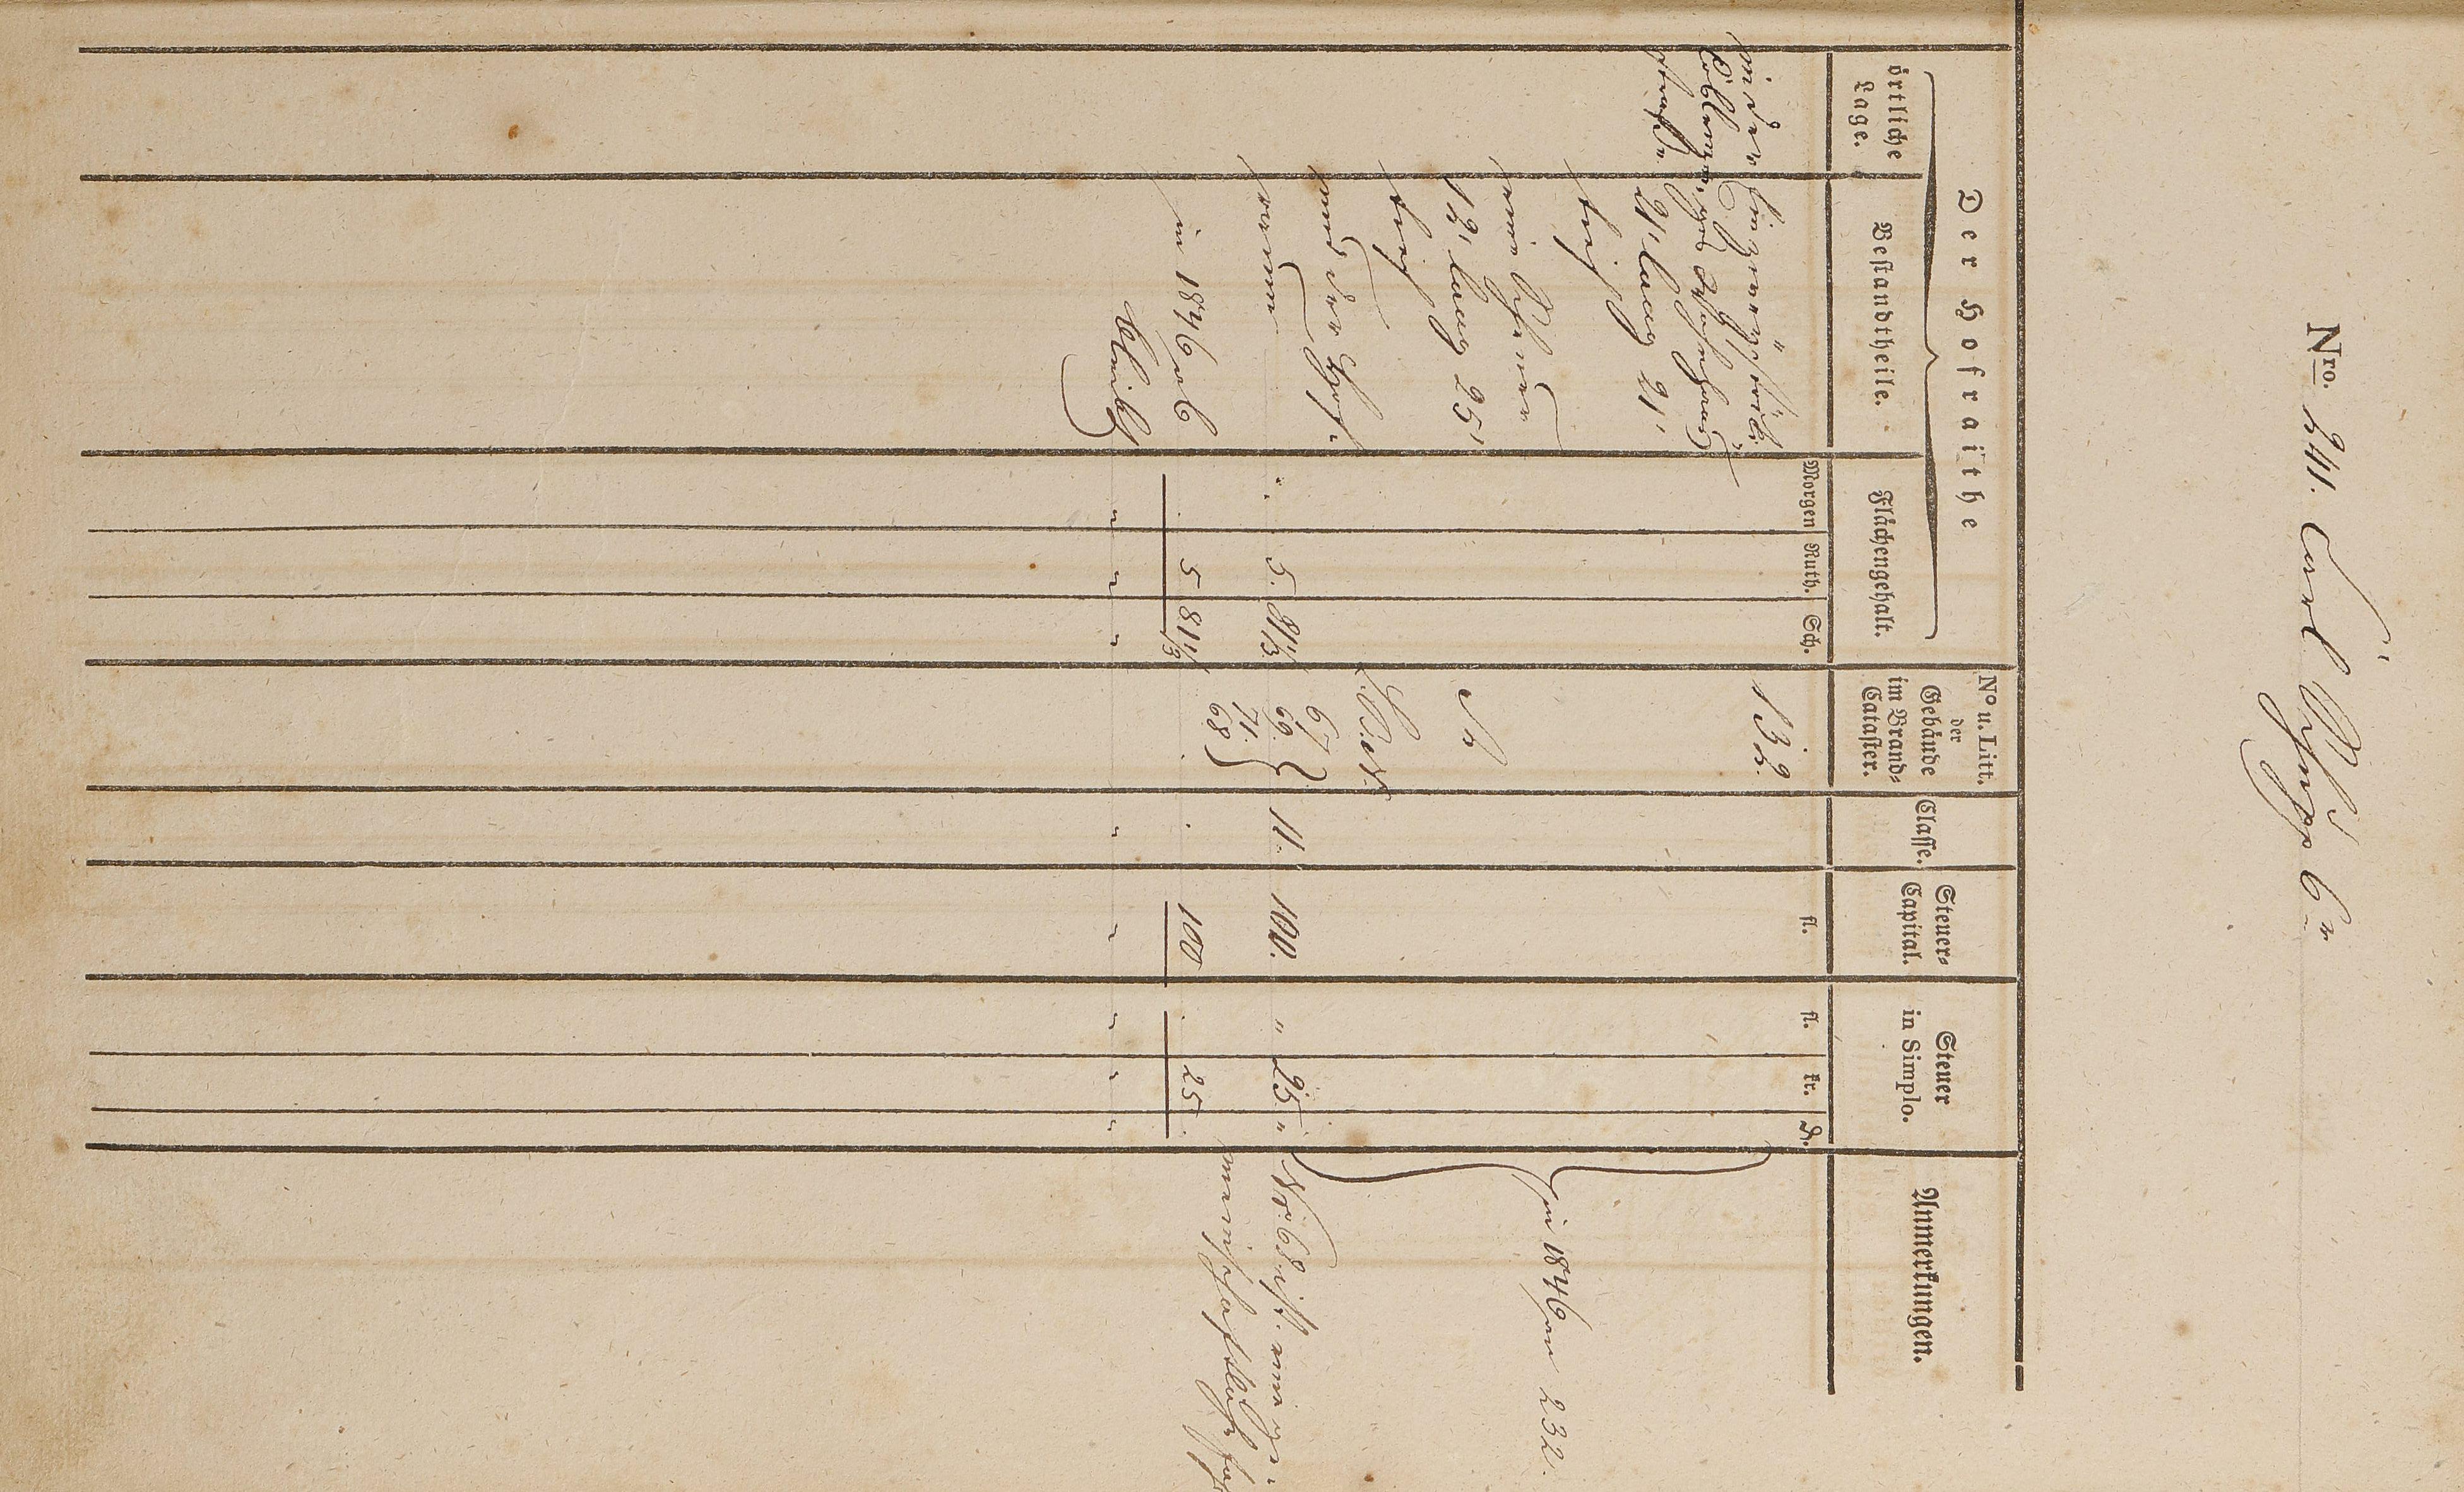 Nro. 241. Carl
Der Hofraithe
örtliche
Lage.
Bestandtheile.
Flächengehalt.
Morgen
Ruth.
Sch.
No u. Litt.
der
Gebäude
im Brand=
Cataster.
Classe.
Steuer=
Capital.
fl.
Steuer
in Simplo.
fl.
kr.
Anmerkungen.
in der
straße
132.
21' lang 21'
tief
eine Scheuer
12' lang 25'
tief
in 1846 an 232.
und der Hof=
raum
5. 81 1/3
67
69
71.
68
11.
100.
" 25. "
No. 68 ist eine ge=
meinschaftliche
in 1846 ab
5 81 1/3
100
25
bleibt
" " " " " " " "